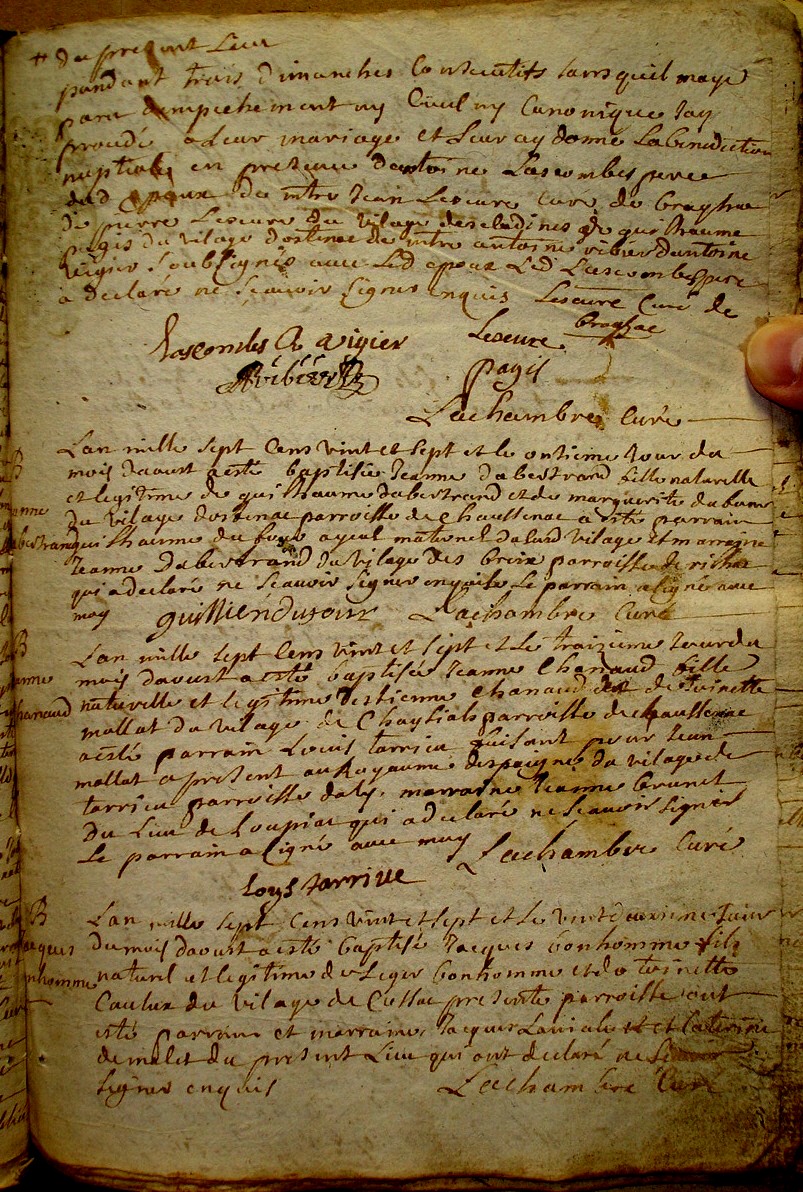 + du present Lieu
pandant trois dimanches Consecutifs sans quil m'aye
paru dempechement ny Civil ny Canonique Jay
procedé a Leur mariage et Leur ay donné La benediction
nuptiale en presence dantoine Lascombes pere
dud epoux de mtre Jean Lescure Curé de Braghac
de pierre Lescure du vilage descladines de guilhaume
pagis du vilage dostenac de mtre antoine ribier dantoine
vigier Soubsignés avec Led epoux Led Lascombes pere
a declaré ne Scavoir Signer enquis Lescure Curé de
Braghac
Lascombes A vigier Lescure
Ribier pagis
Lachambre Curé
Lan mille sept Cens vint et sept et le ontieme Jour du
mois daoust a esté baptisée Jeanne dabertrand fille naturelle
et legitime de guilhaume dabertrand et de marguerite dufour
du vilage dostenac parroisse de Chaussenac a esté parrain
guilhaume du four ayeul maternel dudit vilage et marraine
Jeanne dabertrand du vilage des
qui a declaré ne Scavoir Signer enquise Le parrain a signé avec
moy guillien dufour Lachambre Curé
B
Jeanne
dabertrand
Lan mille sept Cens vint et sept et Le traizieme Jour du
mois daoust a esté baptisée Jeanne Chanaud fille
naturelle et legitime destienne Chanaud et de toinette
mallat du vilage de parroisse de chaussenac
a esté parrain Louis tarrieu faisant pour Jean
mallat a present au Royaume despagne du vilage de
tarrieu parroisse dally, marraine Jeanne brunet
du Lieu de Loupiac qui a declaré ne Scavoir Signer
Le parrain a signé avec moy Lachambre Curé
Loys tarriue
B
Jeanne
chanaud
Lan mille sept Cens vint et sept et Le vint deuxieme Jour
du mois daoust a esté baptisé Jacques bonhomme fils
naturel et legitime de Leger bonhomme et de toinette
Caulux du vilage de Cussac presente parroisse ont
esté parrain et marraine Jacques et Caterine
demalet du present Lieu qui ont declaré ne Scavoir
Signer enquis Lachambre Curé
B
Jacques
bonhomme